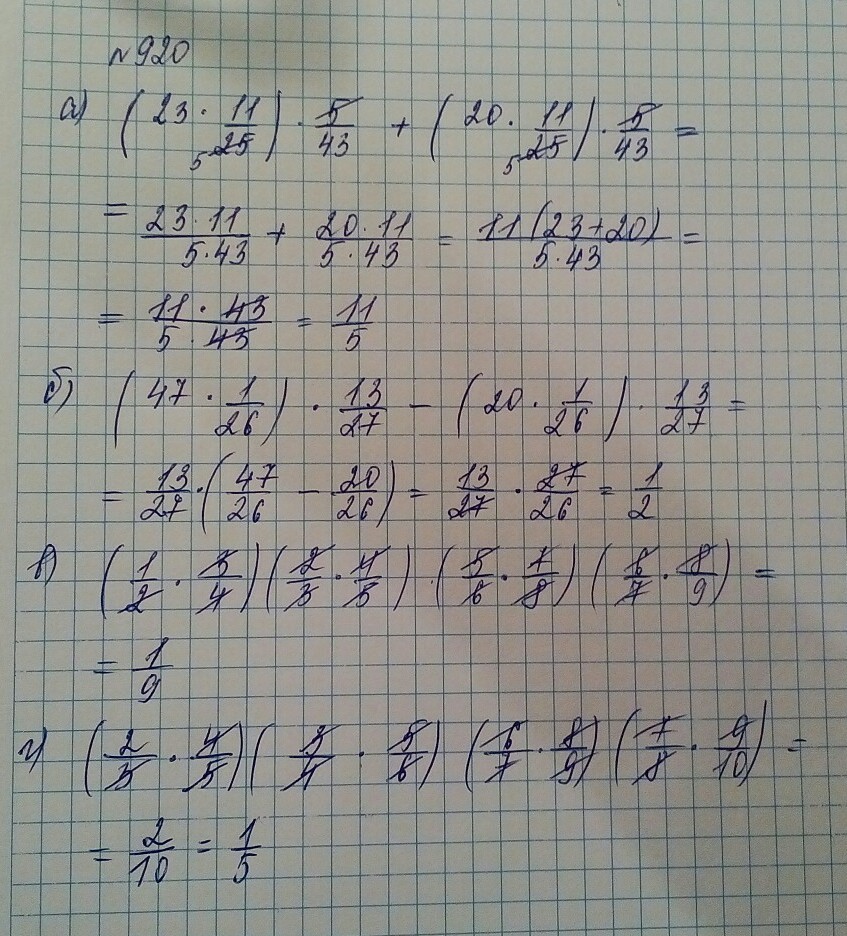 №920
а) (23 · 11/25) · 5/43 + (20 · 11/25) · 5/43 =
5 5
= 23·11/5·43 + 20·11/5·43 = 11(23+20)/5·43 =
= 11·43/5·43 = 11/5
б) (47 · 1/26) · 13/27 − (20 · 1/26) · 13/27 =
= 13/27 · (47/26 − 20/26) = 13/27 · 27/26 = 1/2
в) (1/2 · 3/4)(2/3 · 4/5) · (5/6 · 7/8)(6/7 · 8/9) =
= 1/9
г) (2/3 · 4/5)(3/4 · 5/6)(6/7 · 8/9)(7/8 · 9/10) =
= 2/10 = 1/5